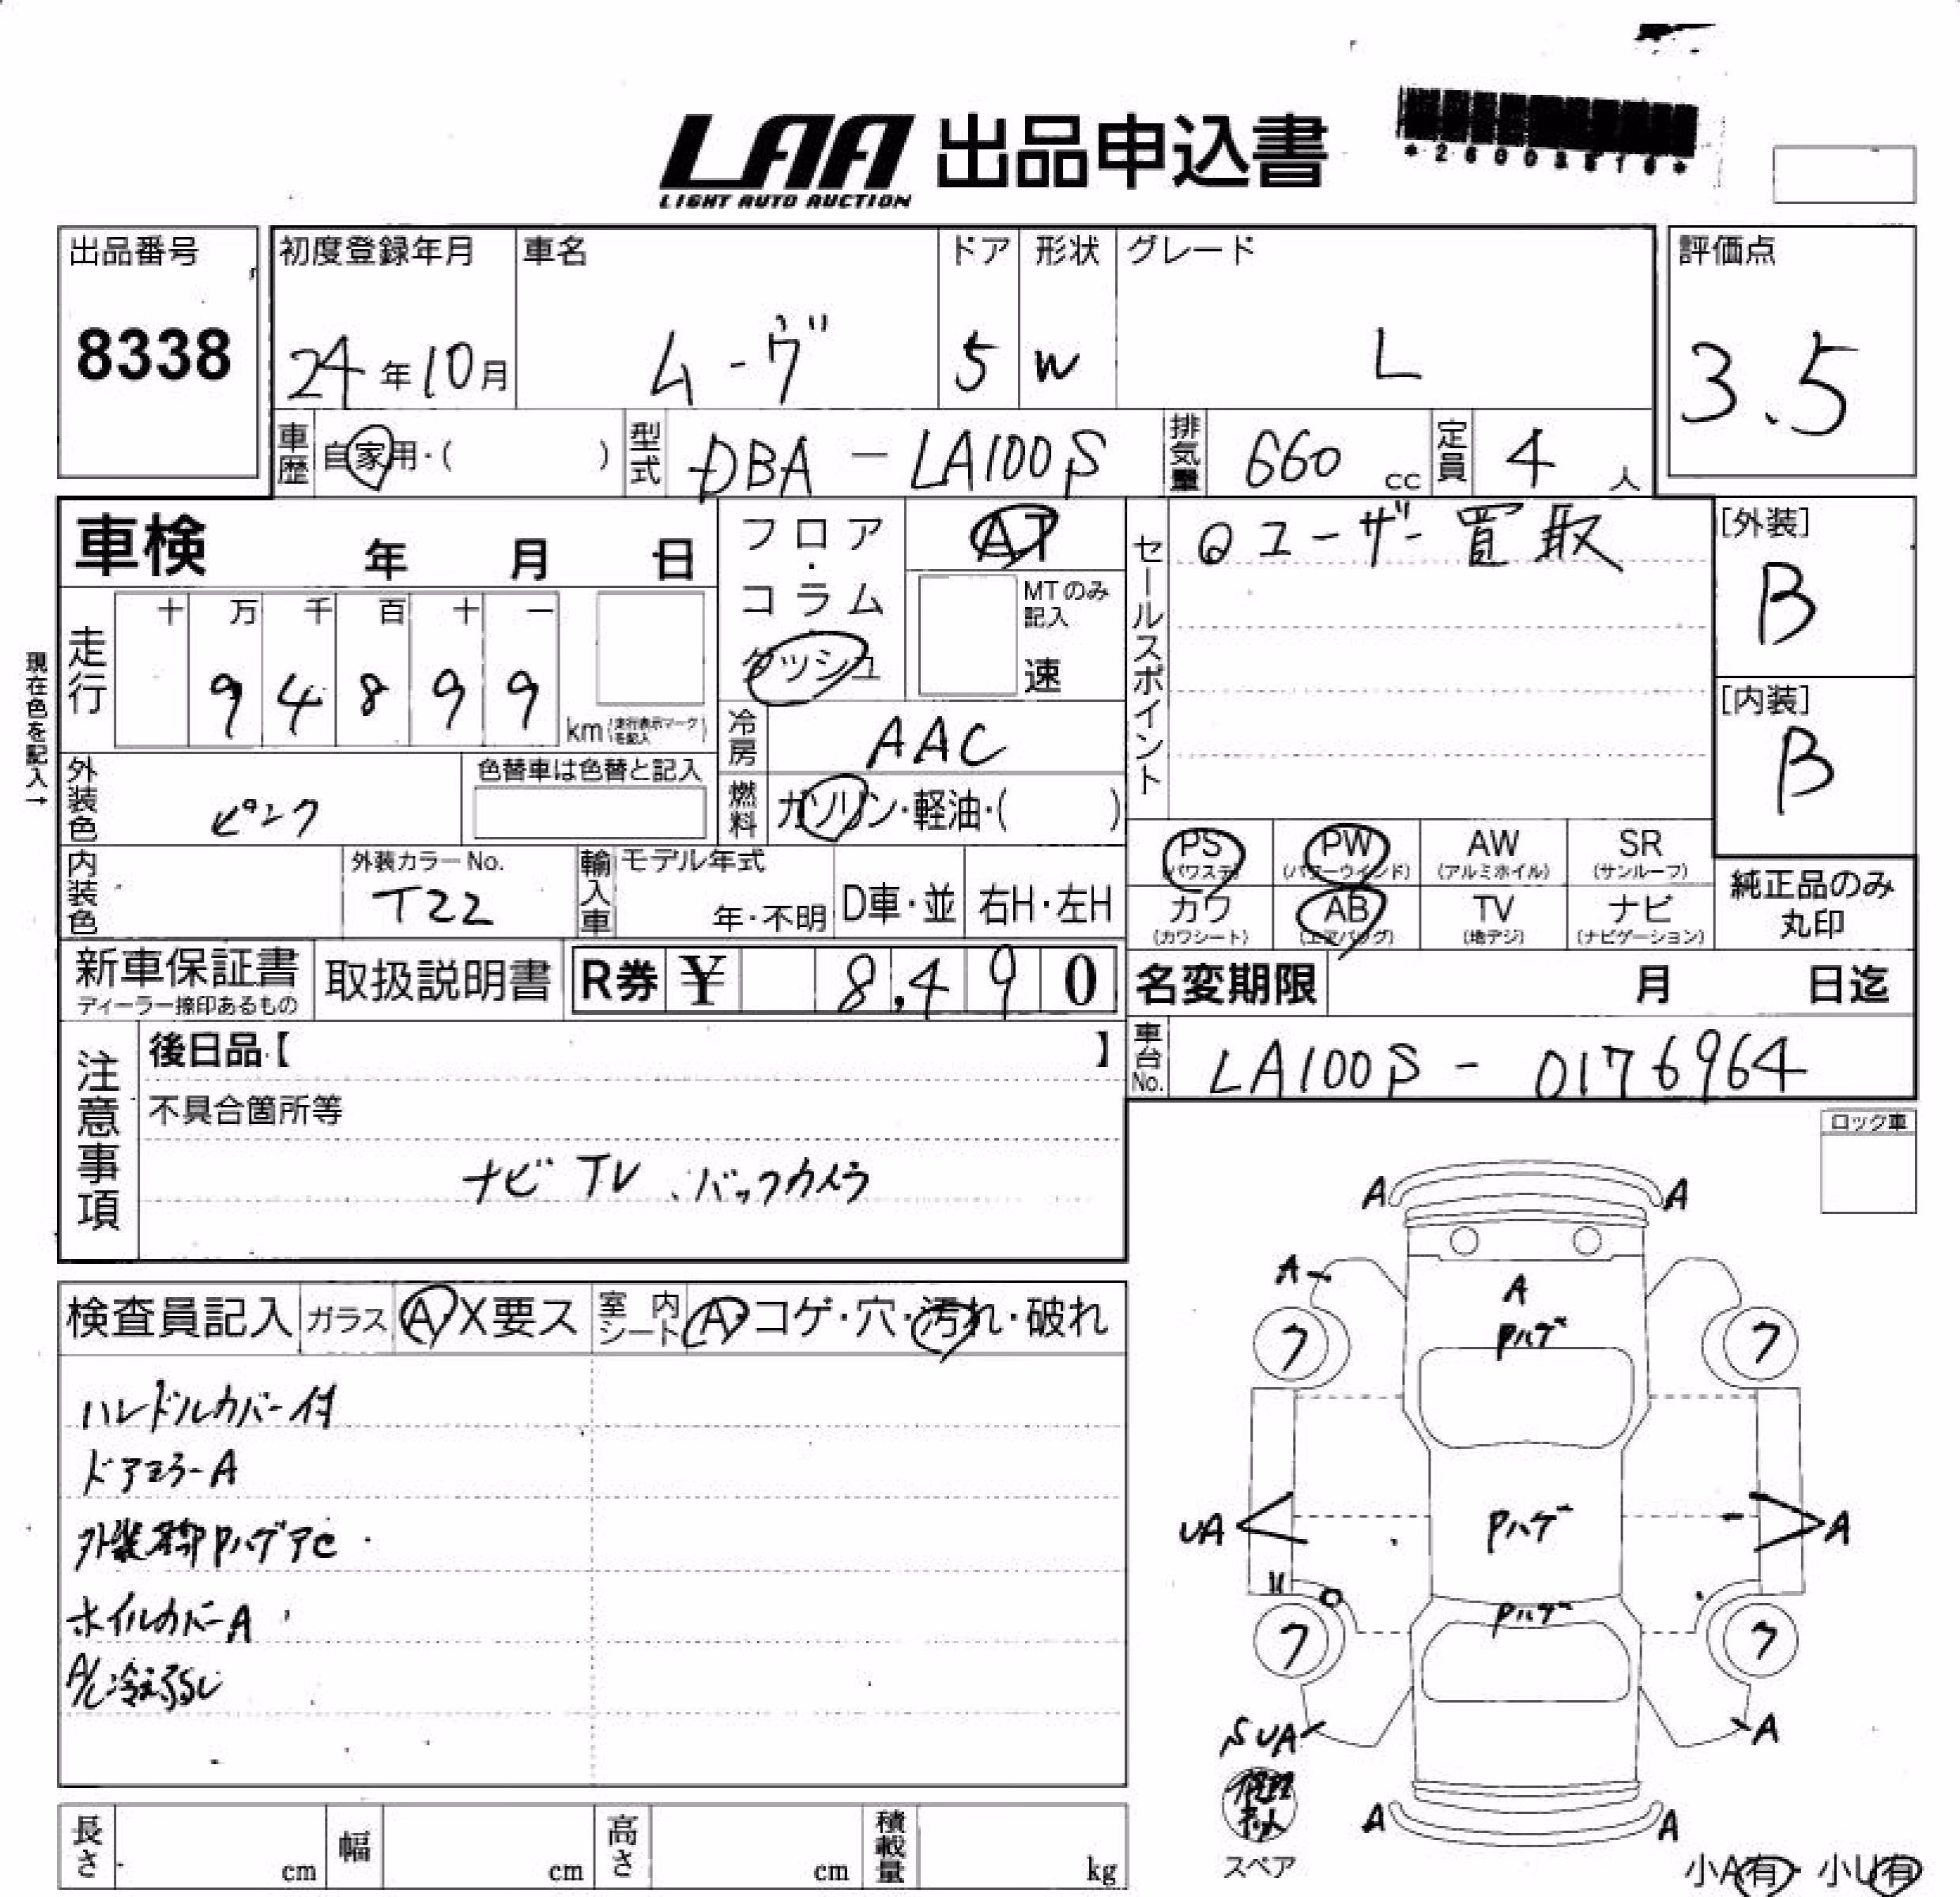 LAA 出品申込書
LIGHT AUTO AUCTION
出品番号
8338
初度登録年月
24年10月
車名
ムーヴ
ドア
5
形状
W
グレード
L
評価点
3.5
車歴 自家用・( )
型式 DBA-LA100S
排気量 660 cc
定員 4 人
車検 年 月 日
フロア・コラム・ダッシュ
AT
MTのみ記入
速
セールスポイント
◎ユーザー買取
[外装]
B
[内装]
B
現在色を記入→
走行
十 万 千 百 十 一
9 4 8 9 9
km (走行表示マークを記入)
冷房 AAC
燃料 ガソリン・軽油・( )
外装色 ピンク
色替車は色替と記入
内装色
外装カラーNo.
T22
輸入車
モデル年式
年・不明
D車・並
右H・左H
PS (パワステ)
PW (パワーウインド)
AW (アルミホイル)
SR (サンルーフ)
カワ (カワシート)
AB (エアバッグ)
TV (地デジ)
ナビ (ナビゲーション)
純正品のみ
丸印
新車保証書
ディーラー捺印あるもの
取扱説明書
R券 ¥ 8,490
名変期限 月 日迄
車台No. LA100S-0176964
注意事項
後日品【 】
不具合箇所等
ナビ TV、バックカメラ
ロック車
検査員記入
ガラス A X要ス
室内シート A・コゲ・穴・汚れ・破れ
ハンドルカバー付
ドアミラーA
ホイルカバーA
A A
A
A
Pハゲ
フ フ
UA
Pハゲ
A
Pハゲ
フ フ
SUA
A
A A
スペア
長さ cm
幅 cm
高さ cm
積載量 kg
小A有・小U有